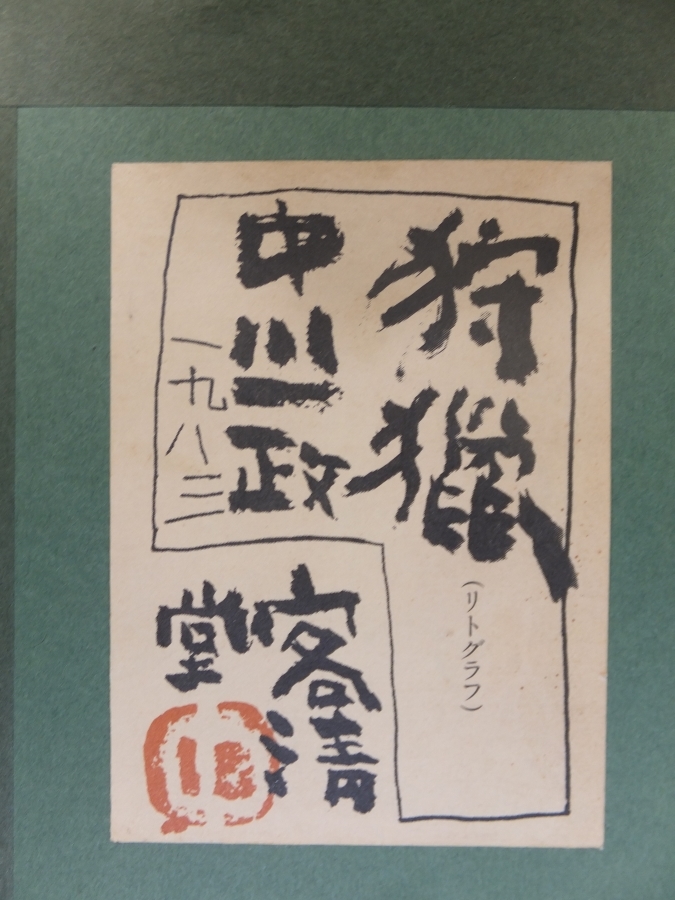 狩獵
(リトグラフ)
中川一政
一九八三
客清
堂